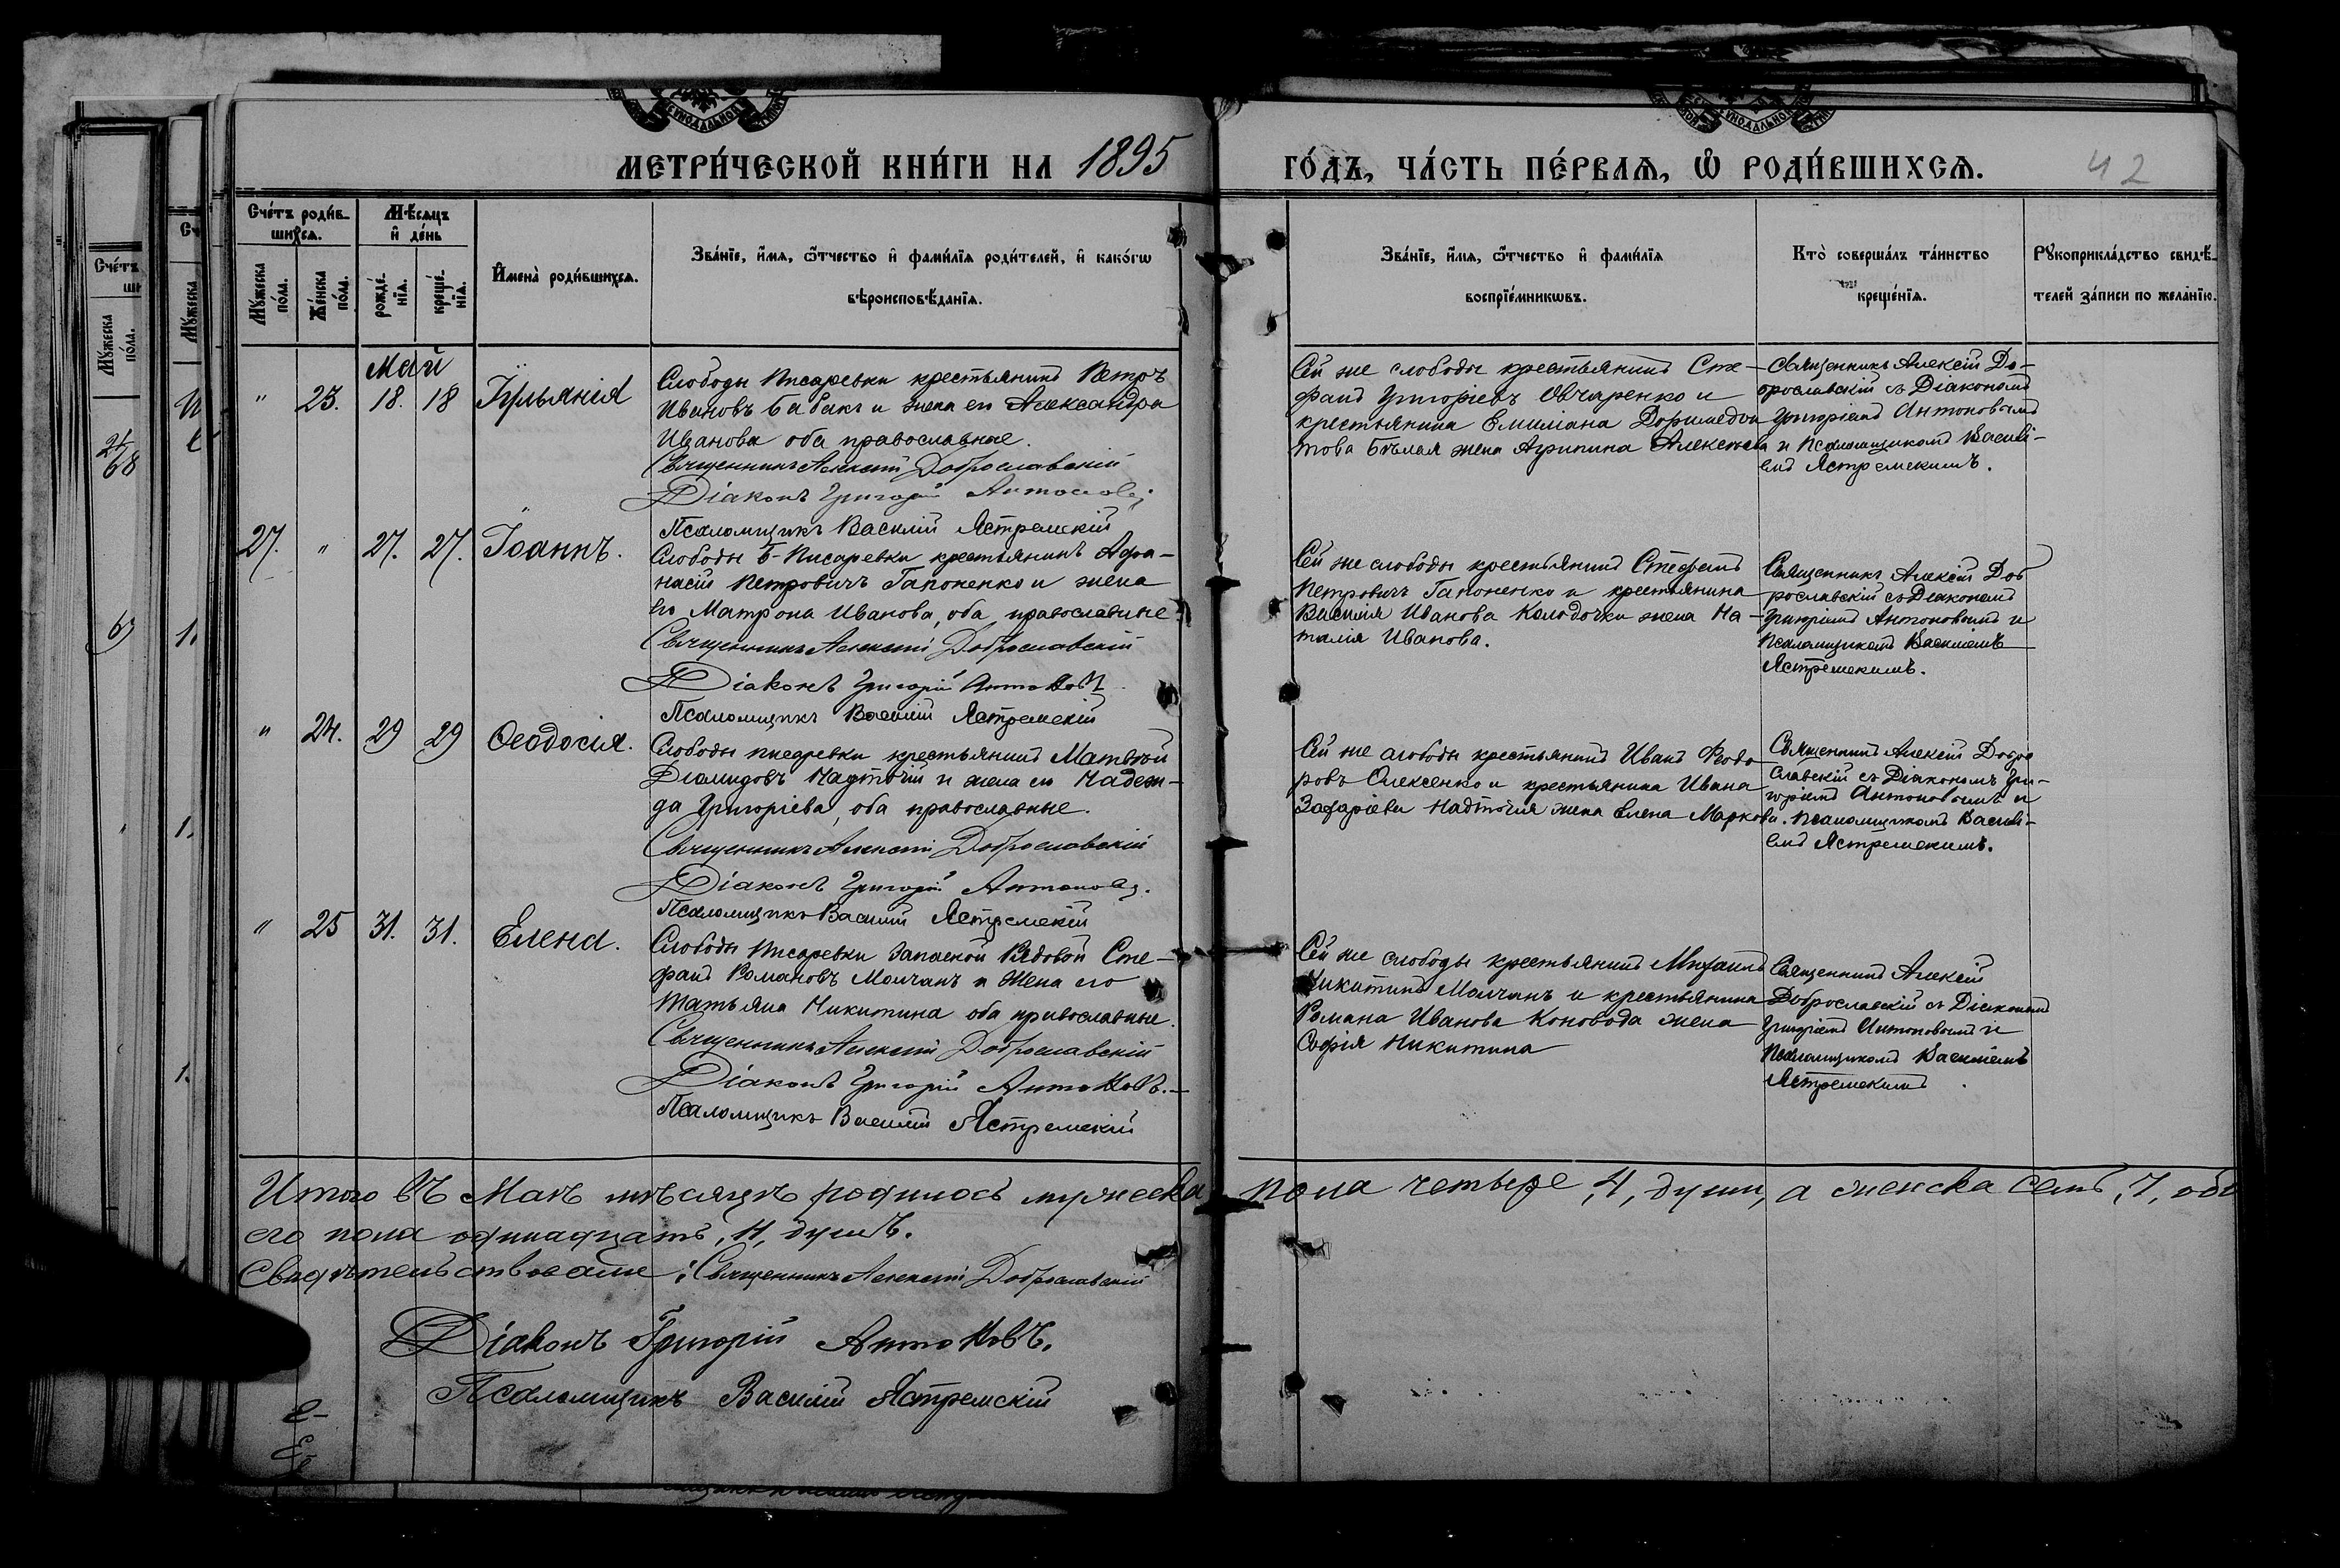 МЕТРИ́ЧЕСКОЙ КНИ́ГИ НА 1895
ГО́ДЪ, ЧА́СТЬ ПЕ́РВАѦ, Ѽ РОДИ́ВШИХСѦ.
42
Сче́тъ роди́в-
шихсѧ.
Мѣ́сѧцъ
и҆ де́нь
Мꙋ́жеска
по́ла.
Же́нска
по́ла.
рожде́-
нїѧ.
креще́-
нїѧ.
И҆мена̀ роди́вшихсѧ.
Зва́нїе, и҆́мѧ, ѻ҆́тчество и҆ фами́лїѧ роди́телей, и҆ како́гѡ
вѣроисповѣ́данїѧ.
Зва́нїе, и҆́мѧ, ѻ҆́тчество и҆ фами́лїѧ
воспрїе́мникѡвъ.
Кто̀ соверша́лъ та́инство
креще́нїѧ.
Рꙋкоприкла́дство свидѣ́-
телей за́писи по жела́нїю.
Май
" 23. 18. 18 Іульянія
Слободы Писаревки крестьянинъ Петръ
Ивановъ Бабакъ и жена его Александра
Иванова оба православные.
Священникъ Алексій Доброславскій
Діаконъ Григорій Антоновъ
Псаломщикъ Василій Ястремскій
Сей же слободы крестьянинъ Сте-
фанъ Григоріевъ Овчаренко и
крестьянина Емиліана Доримедон
това Бѣлая жена Агрипина Алексѣева
Священникъ Алексій До-
брославскій съ Діакономъ
Григоріемъ Антоновымъ
и Псаломщикомъ Василі-
емъ Ястремскимъ.
27. " 27. 27. Іоаннъ.
Слободы Б-Писаревки крестьянинъ Афа-
насій Петровичъ Гапоненко и жена
его Матрона Иванова, оба православные
Священникъ Алексій Доброславскій
Діаконъ Григорій Антоновъ
Псаломщикъ Василій Ястремскій
Сей же слободы крестьянинъ Стефанъ
Петровичъ Гапоненко и крестьянина
Василія Иванова Колодочки жена На-
талія Иванова.
Священникъ Алексій Доб
рославскій съ Діакономъ
Григоріемъ Антоновымъ и
Псаломщикомъ Василіемъ
Ястремскимъ.
" 24. 29 29 Ѳеодосія.
Слободы писаревки крестьянинъ Матвѣй
Діомидовъ Надточій и жена его Надеж-
да Григоріева, оба православные.
Священникъ Алексій Доброславскій
Діаконъ Григорій Антоновъ.
Псаломщикъ Василій Ястремскій
Сей же слободы крестьянинъ Иванъ Ѳеодо
ровъ Олексенко и крестьянина Ивана
Захаріева Надточія жена Елена Маркова.
Священникъ Алексій Добро
славскій съ Діакономъ Гри-
горіемъ Антоновымъ и
Псаломщикомъ Василі-
емъ Ястремскимъ.
" 25 31. 31. Елена.
Слободы Писаревки запасной Рядовой Сте-
фанъ Романовъ Молчанъ и жена его
Татьяна Никитина оба православные.
Священникъ Алексій Доброславскій
Діаконъ Григорій Антоновъ.-
Псаломщикъ Василій Ястремскій
Сей же слободы крестьянинъ Михаилъ
Никитинъ Молчанъ и крестьянина
Романа Иванова Коновода жена
Софія Никитина
Священникъ Алексій
Доброславскій съ Діакономъ
Григоріемъ Антоновымъ и
Псаломщикомъ Василіемъ
Ястремскимъ
Итого въ Маѣ мѣсяцѣ родилось мужеска пола четыре, 4, души, а женска семь, 7, обо
его пола одинадцать, 11, душъ.
Свидѣтельствовали: Священникъ Алексій Доброславскій
Діаконъ Григорій Антоновъ.
Псаломщикъ Василій Ястремскій